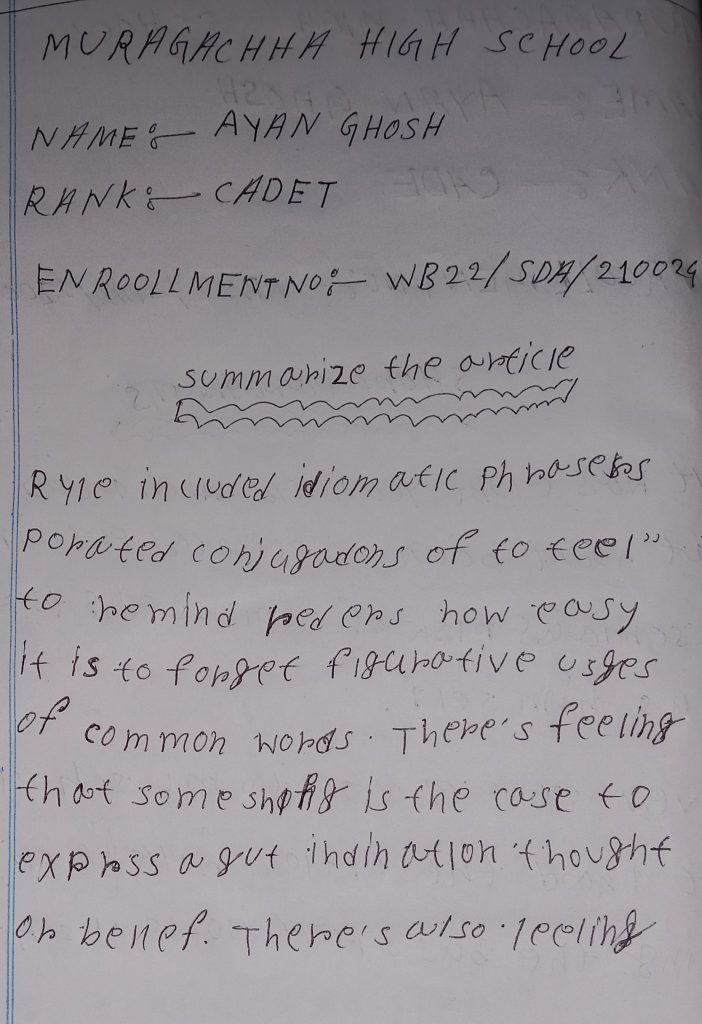 MURAGACHHA HIGH SCHOOL
NAME:- AYAN GHOSH
RANK:- CADET
ENROOLLMENT NO:- WB22/SDA/210024
summarize the article
Ryle included idiomatic phrases
porated conjugadons of to teel"
to remind peders how easy
it is to forget figurative usges
of common words. There's feeling
that some is the case to
exprss a gut indination thought
or benef. There's also leeling